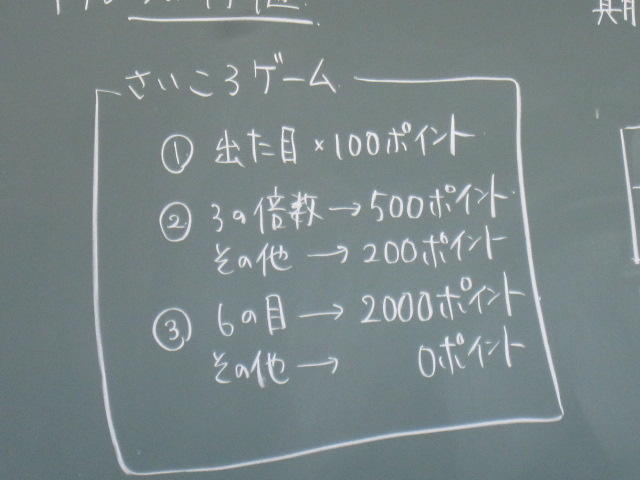 さいころゲーム
① 出た目×100ポイント
② 3の倍数→500ポイント
その他→200ポイント
③ 6の目→2000ポイント
その他→0ポイント